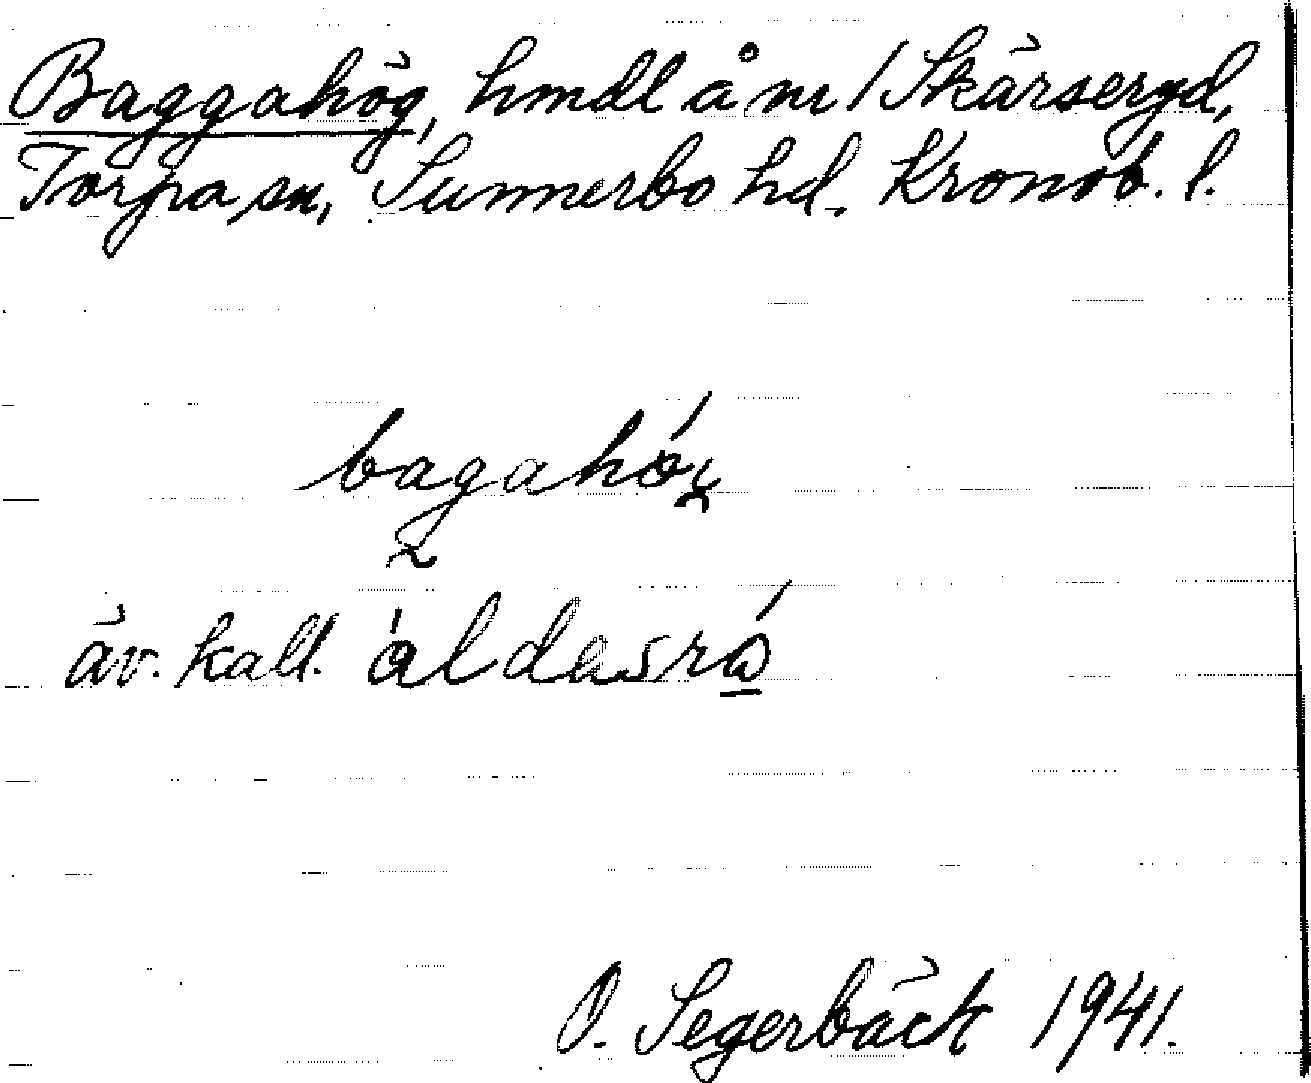 Baggahög, hmdl å m / Skärseryd,
Torpa sn, Sunnerbo hd. Kronob. l.
bagahö́y
äv. kall. áldasrǿ
O. Segerbäck 1941.